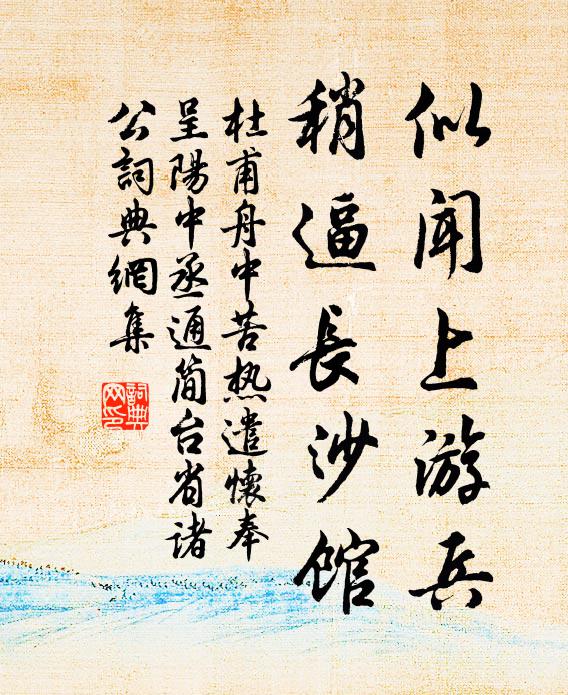 似闻上游兵
稍逼長沙馆
杜甫舟中苦热遣懷奉
呈陽中丞通简台省诸
公詞典網集
詞典网印